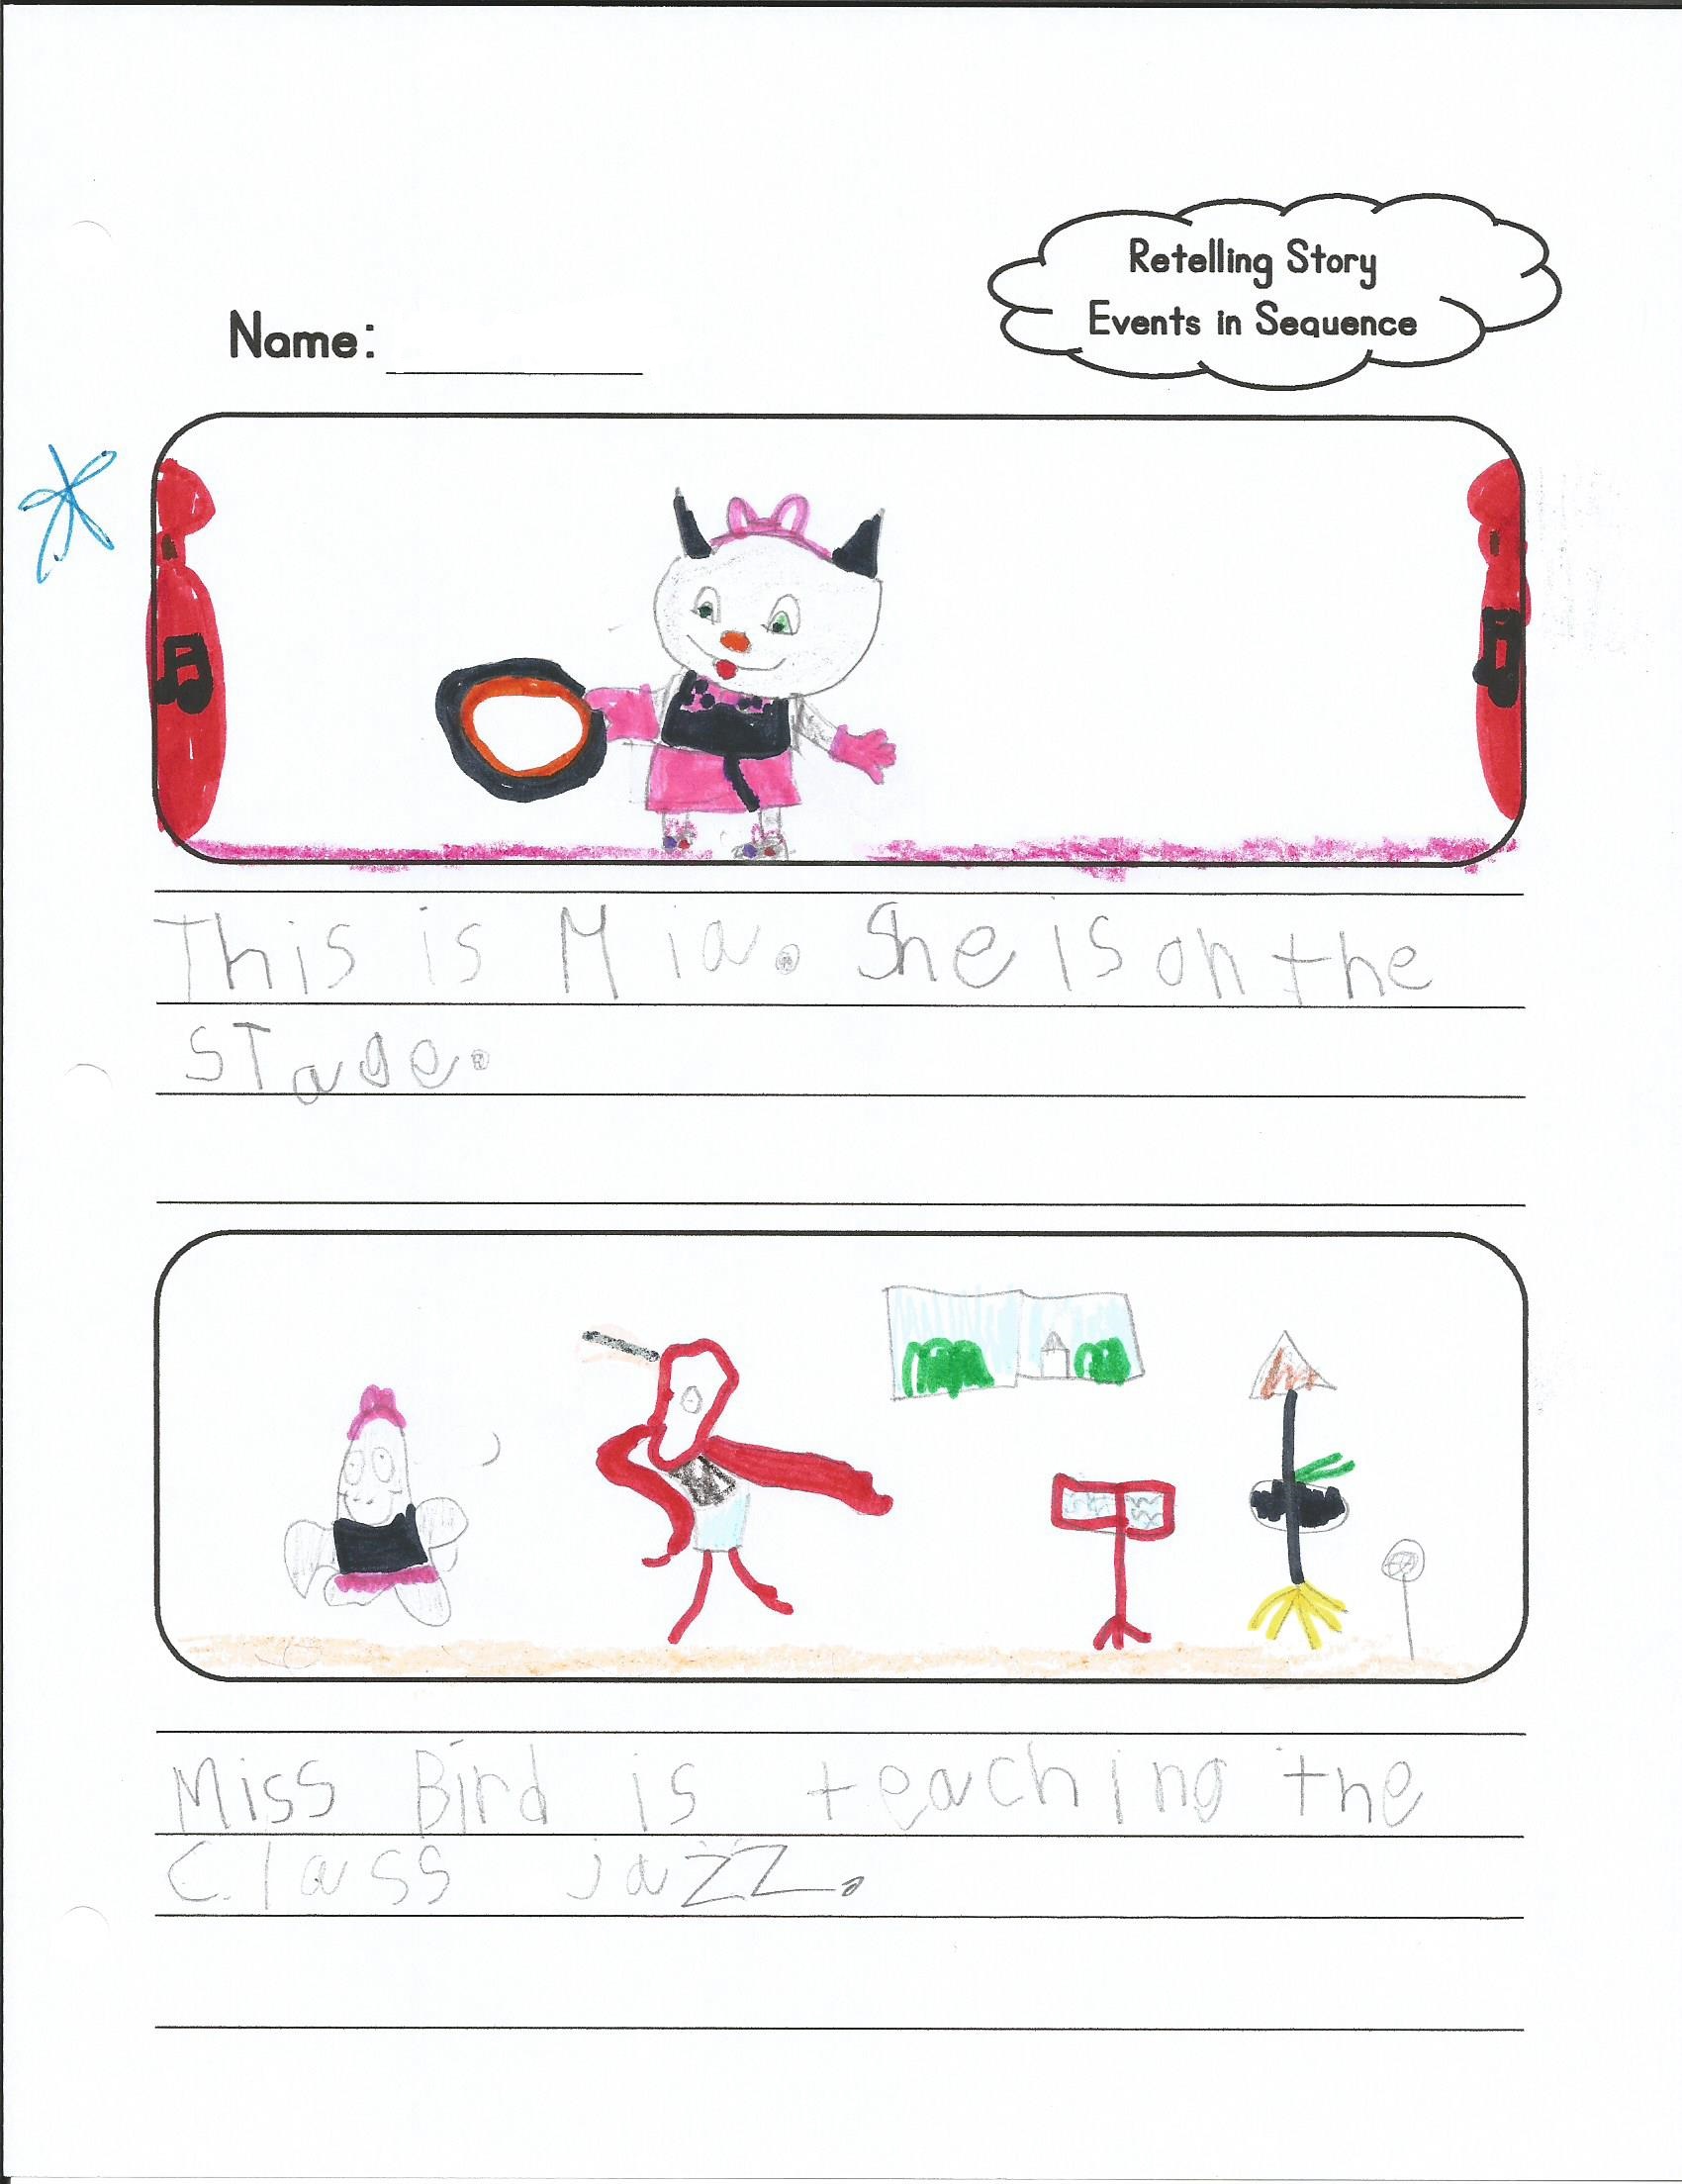 Retelling Story
Events in Sequence
Name:
This is Mia. She is on the
sTage.
Miss Bird is teaching the
Class jazz.